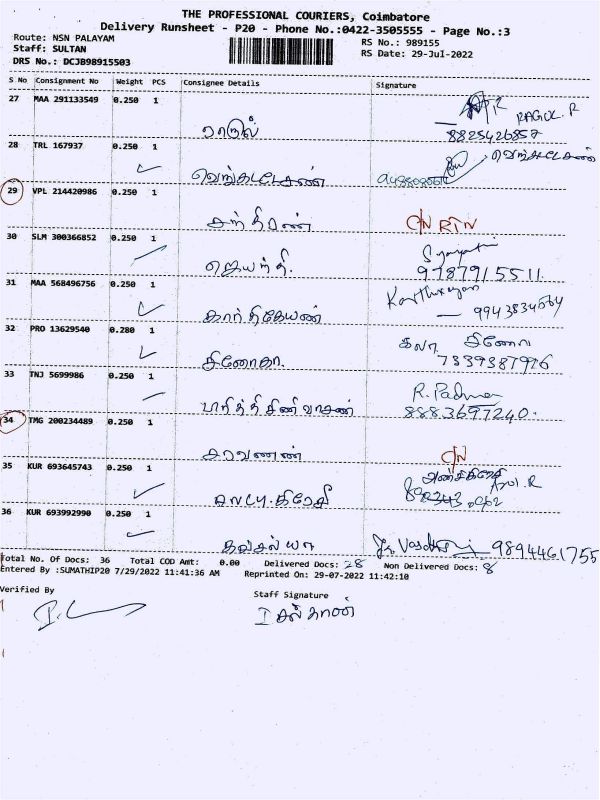 THE PROFESSIONAL COURIERS, Coimbatore
Delivery Runsheet - P20 - Phone No.:0422-3505555 - Page No.:3
Route: NSN PALAYAM
RS No.: 989155
Staff: SULTAN
RS Date: 29-Jul-2022
DRS No.: DCJB98915503
S No Consignment No Weight PCS Consignee Details Signature
27 MAA 291133549 0.250 1
RAGUL.R
ராகுல் 8825426857
28 TRL 167937 0.250 1
வெங்கடேசன்
வெங்கடேசன்
29 VPL 214420986 0.250 1
சந்திரன் C/N RTN
30 SLM 300366852 0.250 1
ஜெயந்தி. 9787915511
31 MAA 568496756 0.250 1
Karthikeyan
கார்த்திகேயன் 9943834664
32 PRO 13629540 0.280 1
கலா
7339387916
33 TNJ 5699986 0.250 1
R. Padma
8883697240.
34 TMG 200234489 0.250 1
சரவணன் C/N
35 KUR 693645743 0.250 1
36 KUR 693992990 0.250 1
கவுசல்யா 9894461755
Total No. Of Docs: 36 Total COD Amt: 0.00 Delivered Docs: 28 Non Delivered Docs: 8
Entered By :SUMATHIP20 7/29/2022 11:41:36 AM Reprinted On: 29-07-2022 11:42:10
Verified By
Staff Signature